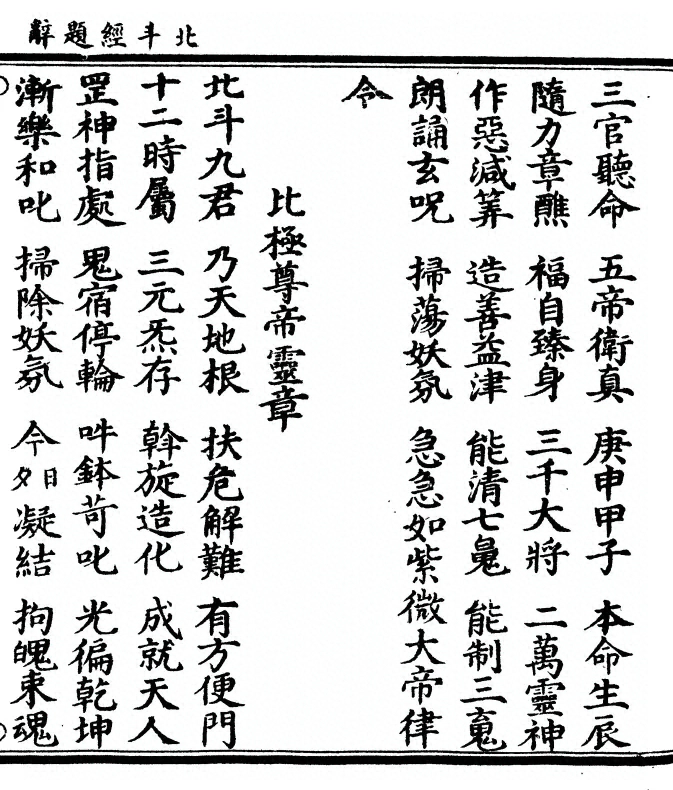 北斗經題辭
三官聽命 五帝衛真 庚申甲子 本命生辰
隨力章醮 福自臻身 三千大將 二萬靈神
作惡減筭 造善益津 能清七䰟 能制三䰟
朗誦玄咒 掃蕩妖氛 急急如紫微大帝律
令
北極尊帝靈章
北斗九君 乃天地根 扶危解難 有方便門
十二時屬 三元炁存 斡旋造化 成就天人
罡神指處 鬼宿停輪 吽鉢苛叱 光徧乾坤
漸樂和叱 掃除妖氛 今日夕凝結 拘魄束魂